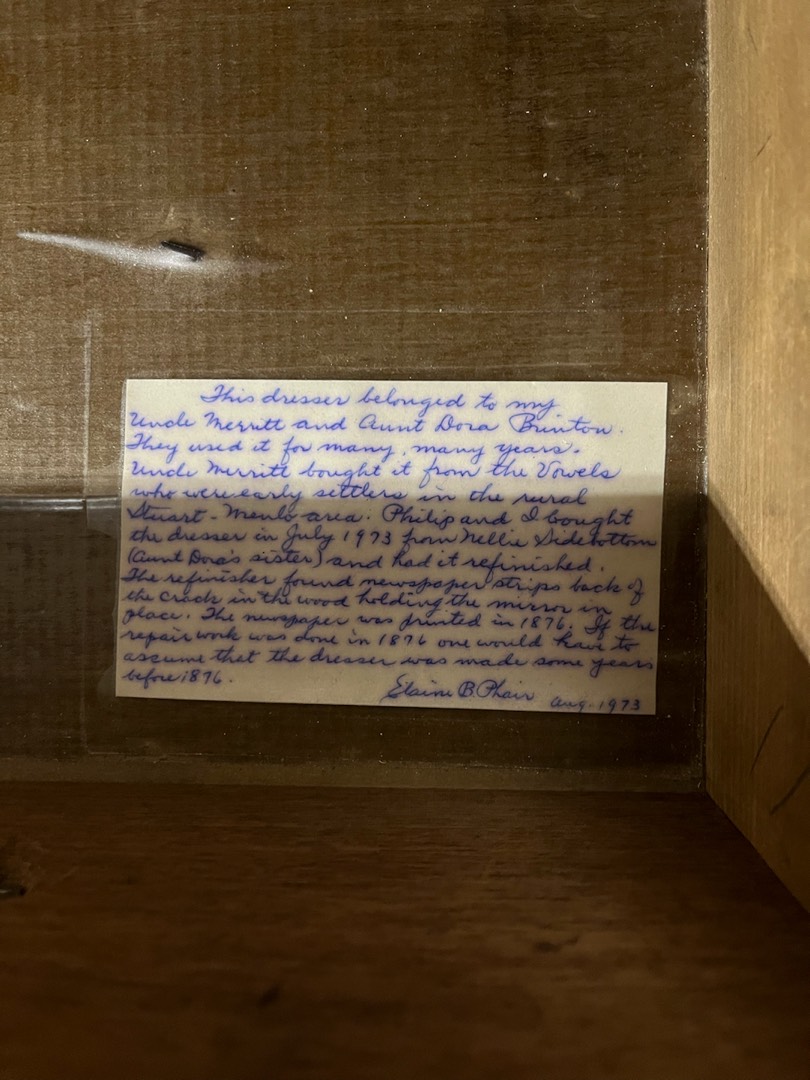 This dresser belonged to my
Uncle Merritt and Aunt Dora Brinton.
They used it for many, many years.
Uncle Merritt bought it from the Vowels
who were early settlers in the rural
Stuart-Menlo area. Philip and I bought
the dresser in July 1973 from Nellie Sidebottom
(Aunt Dora's sister) and had it refinished.
The refinisher found newspaper strips back of
the crack in the wood holding the mirror in
place. The newspaper was printed in 1876. If the
repair work was done in 1876 one would have to
assume that the dresser was made some years
before 1876.
Elaine B. Phair Aug. 1973